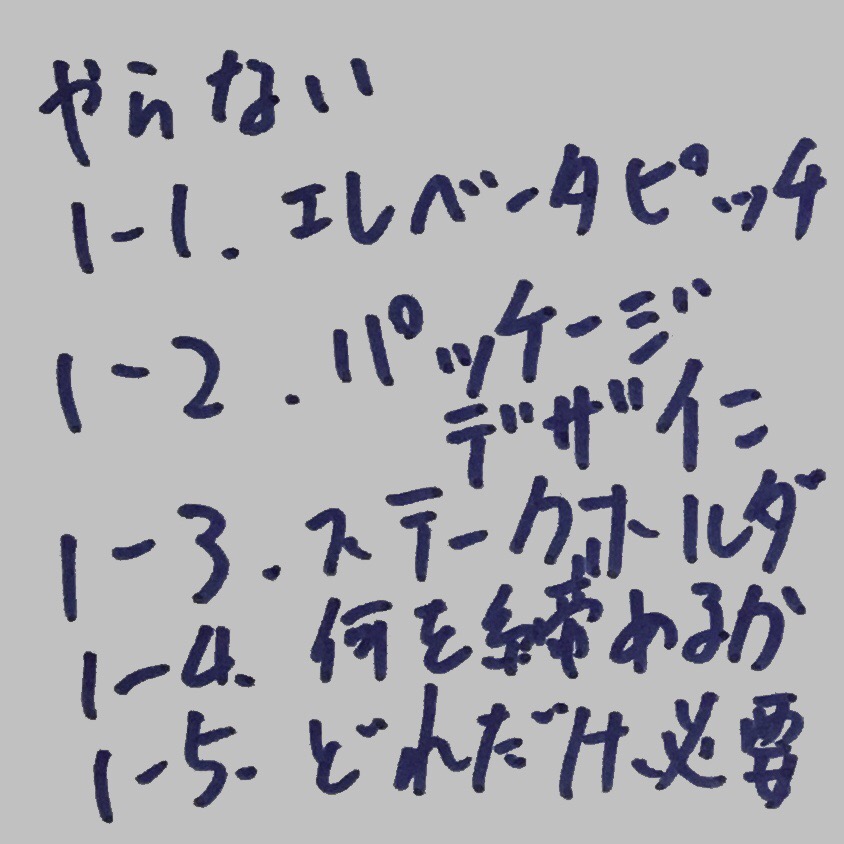 やらない
1-1. エレベータピッチ
1-2. パッケージ
デザイン
1-3. ステークホルダ
1-4. 何を締めるか
1-5. どれだけ必要